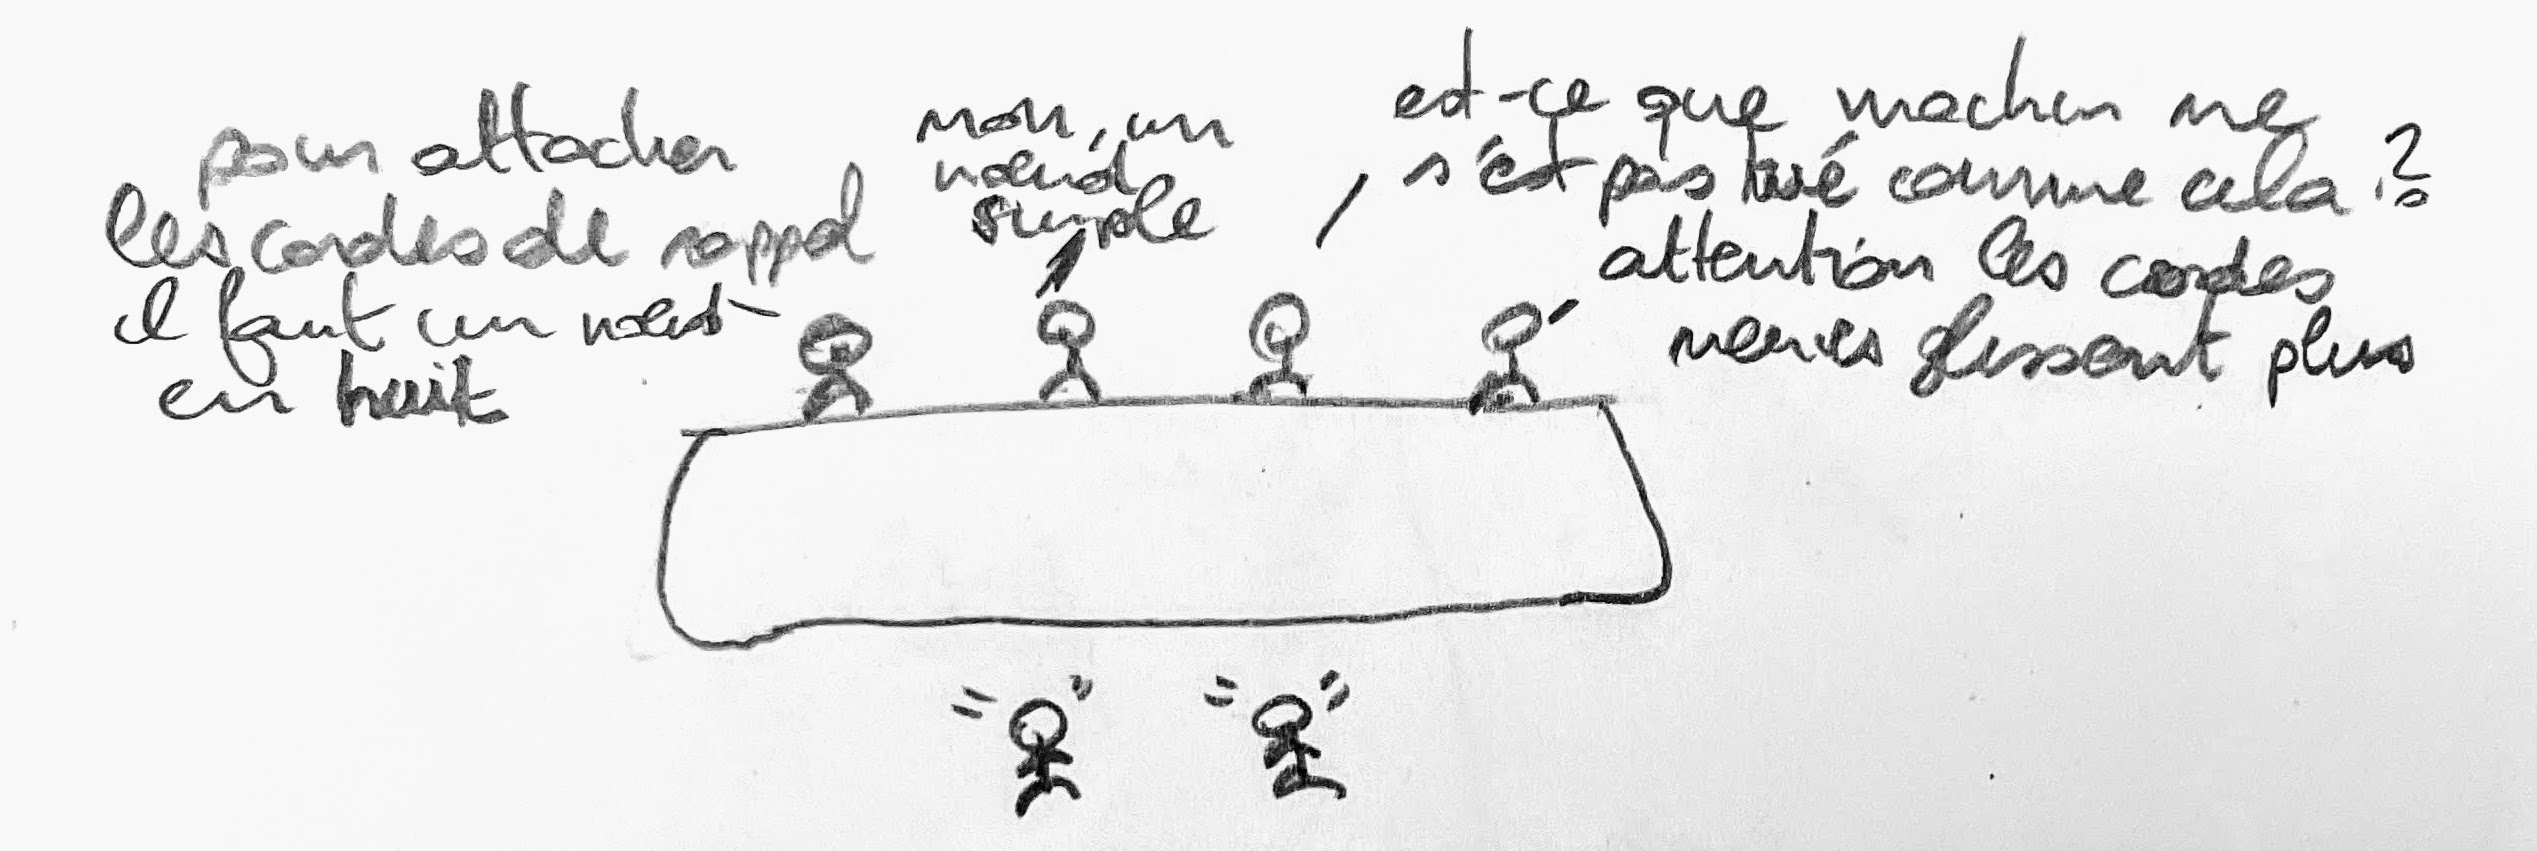 pour attacher
les cordes de rappel
il faut un noeud
en huit
non, un
noeud
simple
est-ce que machin ne
s'est pas tué comme cela ?
attention les cordes
neuves glissent plus